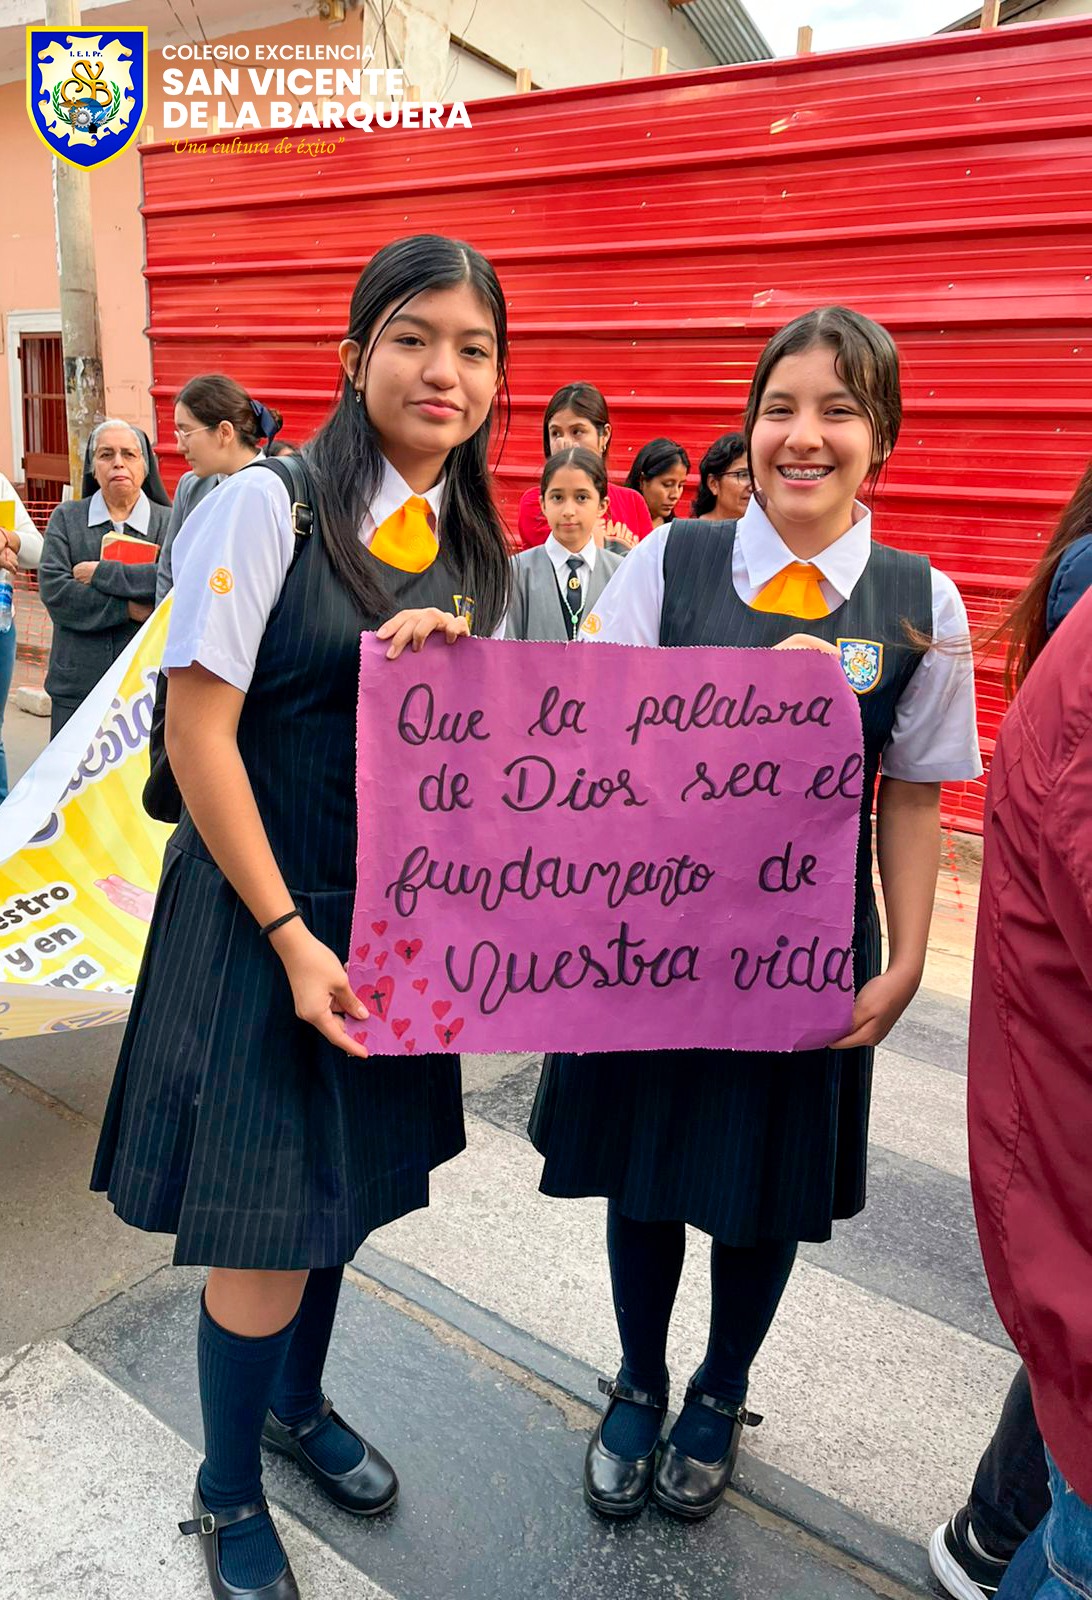 I. E. I. Pr.
SVB
COLEGIO EXCELENCIA
SAN VICENTE
DE LA BARQUERA
"Una cultura de éxito"
Que la palabra
de Dios sea el
fundamento de
Nuestra vida
estro
y en
na